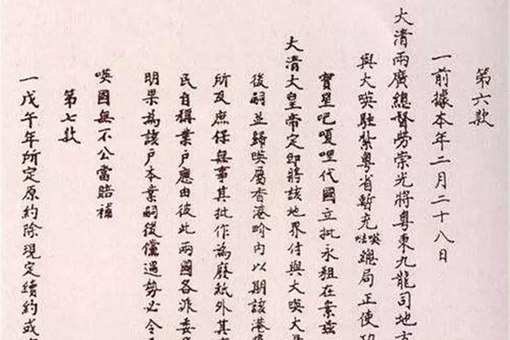 第六款
一前據本年二月二十八日
大清兩廣總督勞崇光將粵東九龍司地
與大𠸄駐紮粵省暫充𠸄總局正使功
寶星吧嗄哩代國立批永租在案茲
大清大皇帝定即將該地界付與大𠸄大
後嗣並歸𠸄屬香港界內以期該港
所及庶保無事其批作為廢紙外其
民自稱業戶應由彼此兩國各派委
明果為該戶本業嗣後倘遇勢必令
𠸄國無不公當賠補
第七款
一戊午年所定原約除現定續約或